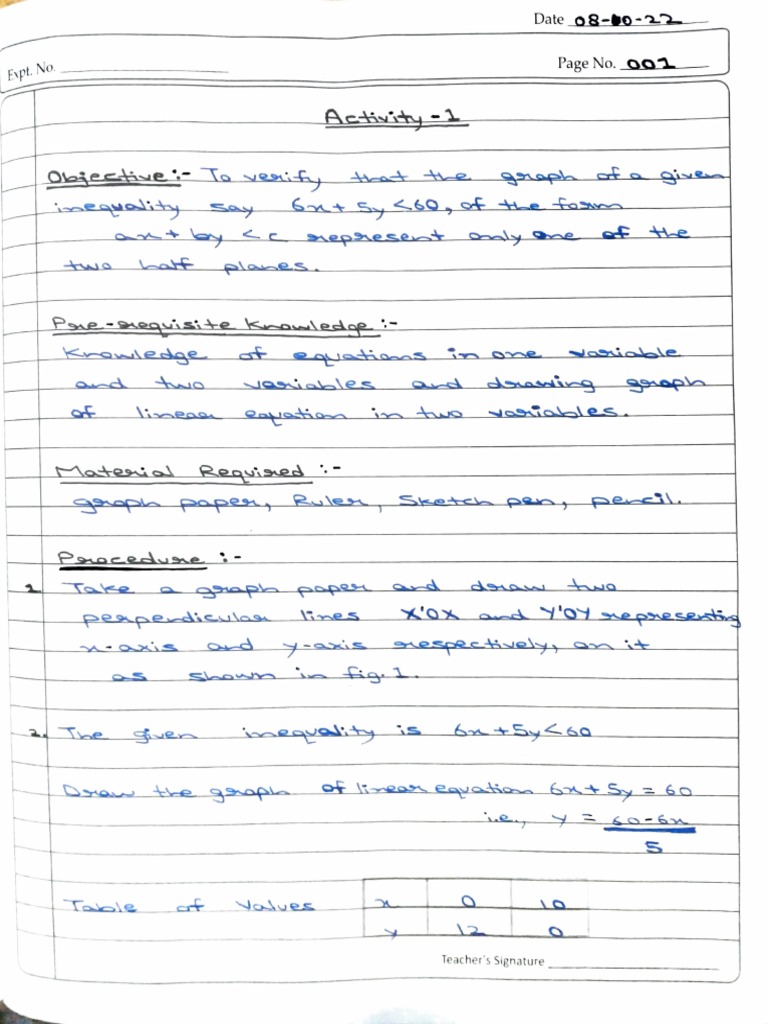 Date 08-10-22
Expt. No.
Page No. 001
Activity - 1
Objective :- To verify that the graph of a given
inequality say 6x + 5y < 60, of the form
ax + by < c represent only one of the
two half planes.
Pre-requisite Knowledge :-
Knowledge of equations in one variable
and two variables and drawing graph
of linear equation in two variables.
Material Required :-
graph paper, Ruler, Sketch pen, pencil.
Procedure :-
1. Take a graph paper and draw two
perpendicular lines X'OX and Y'OY representing
x-axis and y-axis respectively, on it
as shown in fig. 1.
2. The given inequality is 6x + 5y < 60
Draw the graph of linear equation 6x + 5y = 60
i.e., y = 60 - 6x
5
Table of Values x 0 10
y 12 0
Teacher's Signature